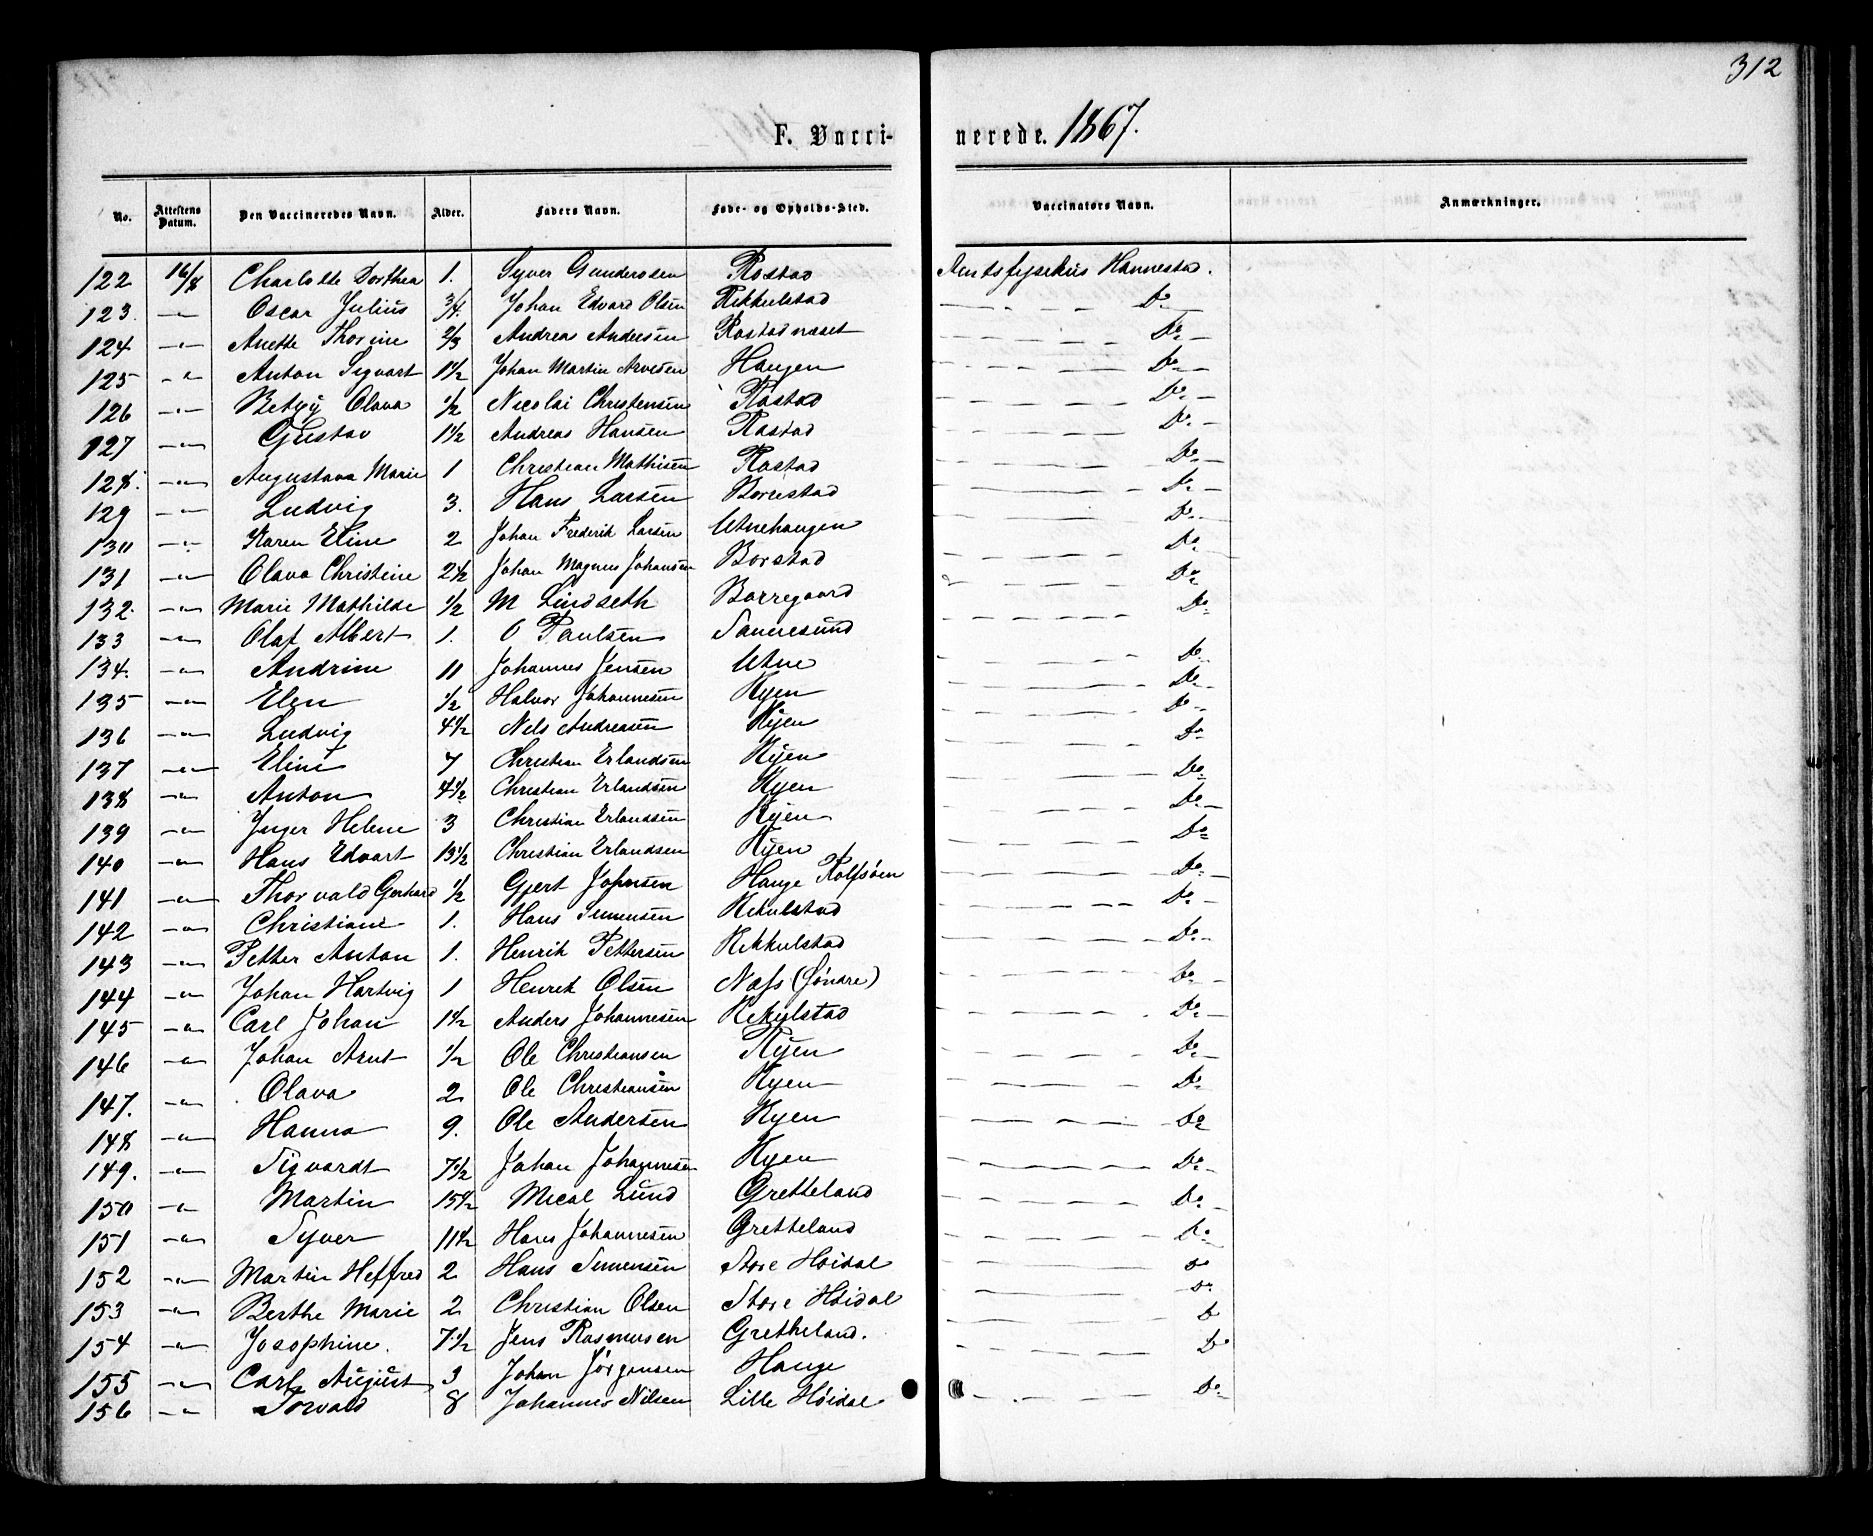 312
F. Vacci- nerede. 1867.
No. Attestens Datum. Den Vaccineredes Navn. Alder. Faders Navn. Føde- og Opholds-Sted. Vaccinators Navn. Anmærkninger.
122 16/8 Charlotte Dorthea 1. Syver Gundersen Rostad Amtsfysikus Hannestad.
123. -"- Oscar Julius 3/4. Johan Edvard Olsen Rekkulstad Do
124 -"- Anette Thorine 2/3 Andreas Andersen Rostadnæset Do
125 -"- Anton Sigvart 1 1/2 Johan Martin Arvesen Haugen Do
126 -"- Betzy Olava 1/2 Nicolai Christensen Rostad Do
127 -"- Gustav 1 1/2 Andreas Hansen Rostad Do
128. -"- Augustava Marie 1 Christian Mathisen Rostad Do
129 -"- Ludvig 3. Hans Larsen Borrestad Do
130 -"- Karen Eline 2 Johan Frederik Larsen Utnehaugen Do
131 -"- Olava Christine 2 1/2 Johan Magnus Johansen Borstad Do
132. -"- Marie Mathilde 1/2 M Lindseth Borregaard Do
133 -"- Olaf Albert 1. O Paulsen Sannesund Do
134. -"- Andrine 11 Johannes Jensen Utne Do
135 -"- Elen 1/2 Halvor Johannesen Ryen Do
136 -"- Ludvig 4 1/2 Nils Andreasen Ryen Do
137 -"- Eline 7 Christian Erlandsen Ryen Do
138 -"- Anton 4 1/2 Christian Erlandsen Ryen Do
139 -"- Inger Helene 3 Christian Erlandsen Ryen Do
140 -"- Hans Edvart 13 1/2 Christian Erlandsen Ryen Do
141 -"- Thorvald Gerhard 1/2 Gjert Johnsen Hauge Rolfsøen Do
142 -"- Christiane 1. Hans Simensen Rekulstad Do
143 -"- Petter Anton 1. Henrik Pettersen Rekkulstad Do
144 -"- Johan Hartvig 1 Henrik Olsen Næss (Søndre) Do
145 -"- Carl Johan 1 1/2 Anders Johannesen Rekulstad Do
146 -"- Johan Arnt 1/2 Ole Christiansen Ryen Do
147. -"- Olava 2 Ole Christiansen Ryen Do
148 -"- Hanna 9. Ole Andersen Ryen Do
149. -"- Sigvardt 7 1/2 Johan Johannesen Ryen Do
150 -"- Martin 15 1/2 Mical Lund Gretteland Do
151 -"- Syver 11 1/2 Hans Johannesen Gretteland Do
152 -"- Martin Heffred 2 Hans Simensen Store Høidal Do
153 -"- Berthe Marie 2 Christian Olsen Store Høidal Do
154 -"- Josephine. 7 1/2 Jens Rasmusen Gretteland. Do
155 -"- Carl August 3 Johan Jørgensen Hauge Do
156 -"- Torvald 8 Johannes Nilsen Lille Høidal Do